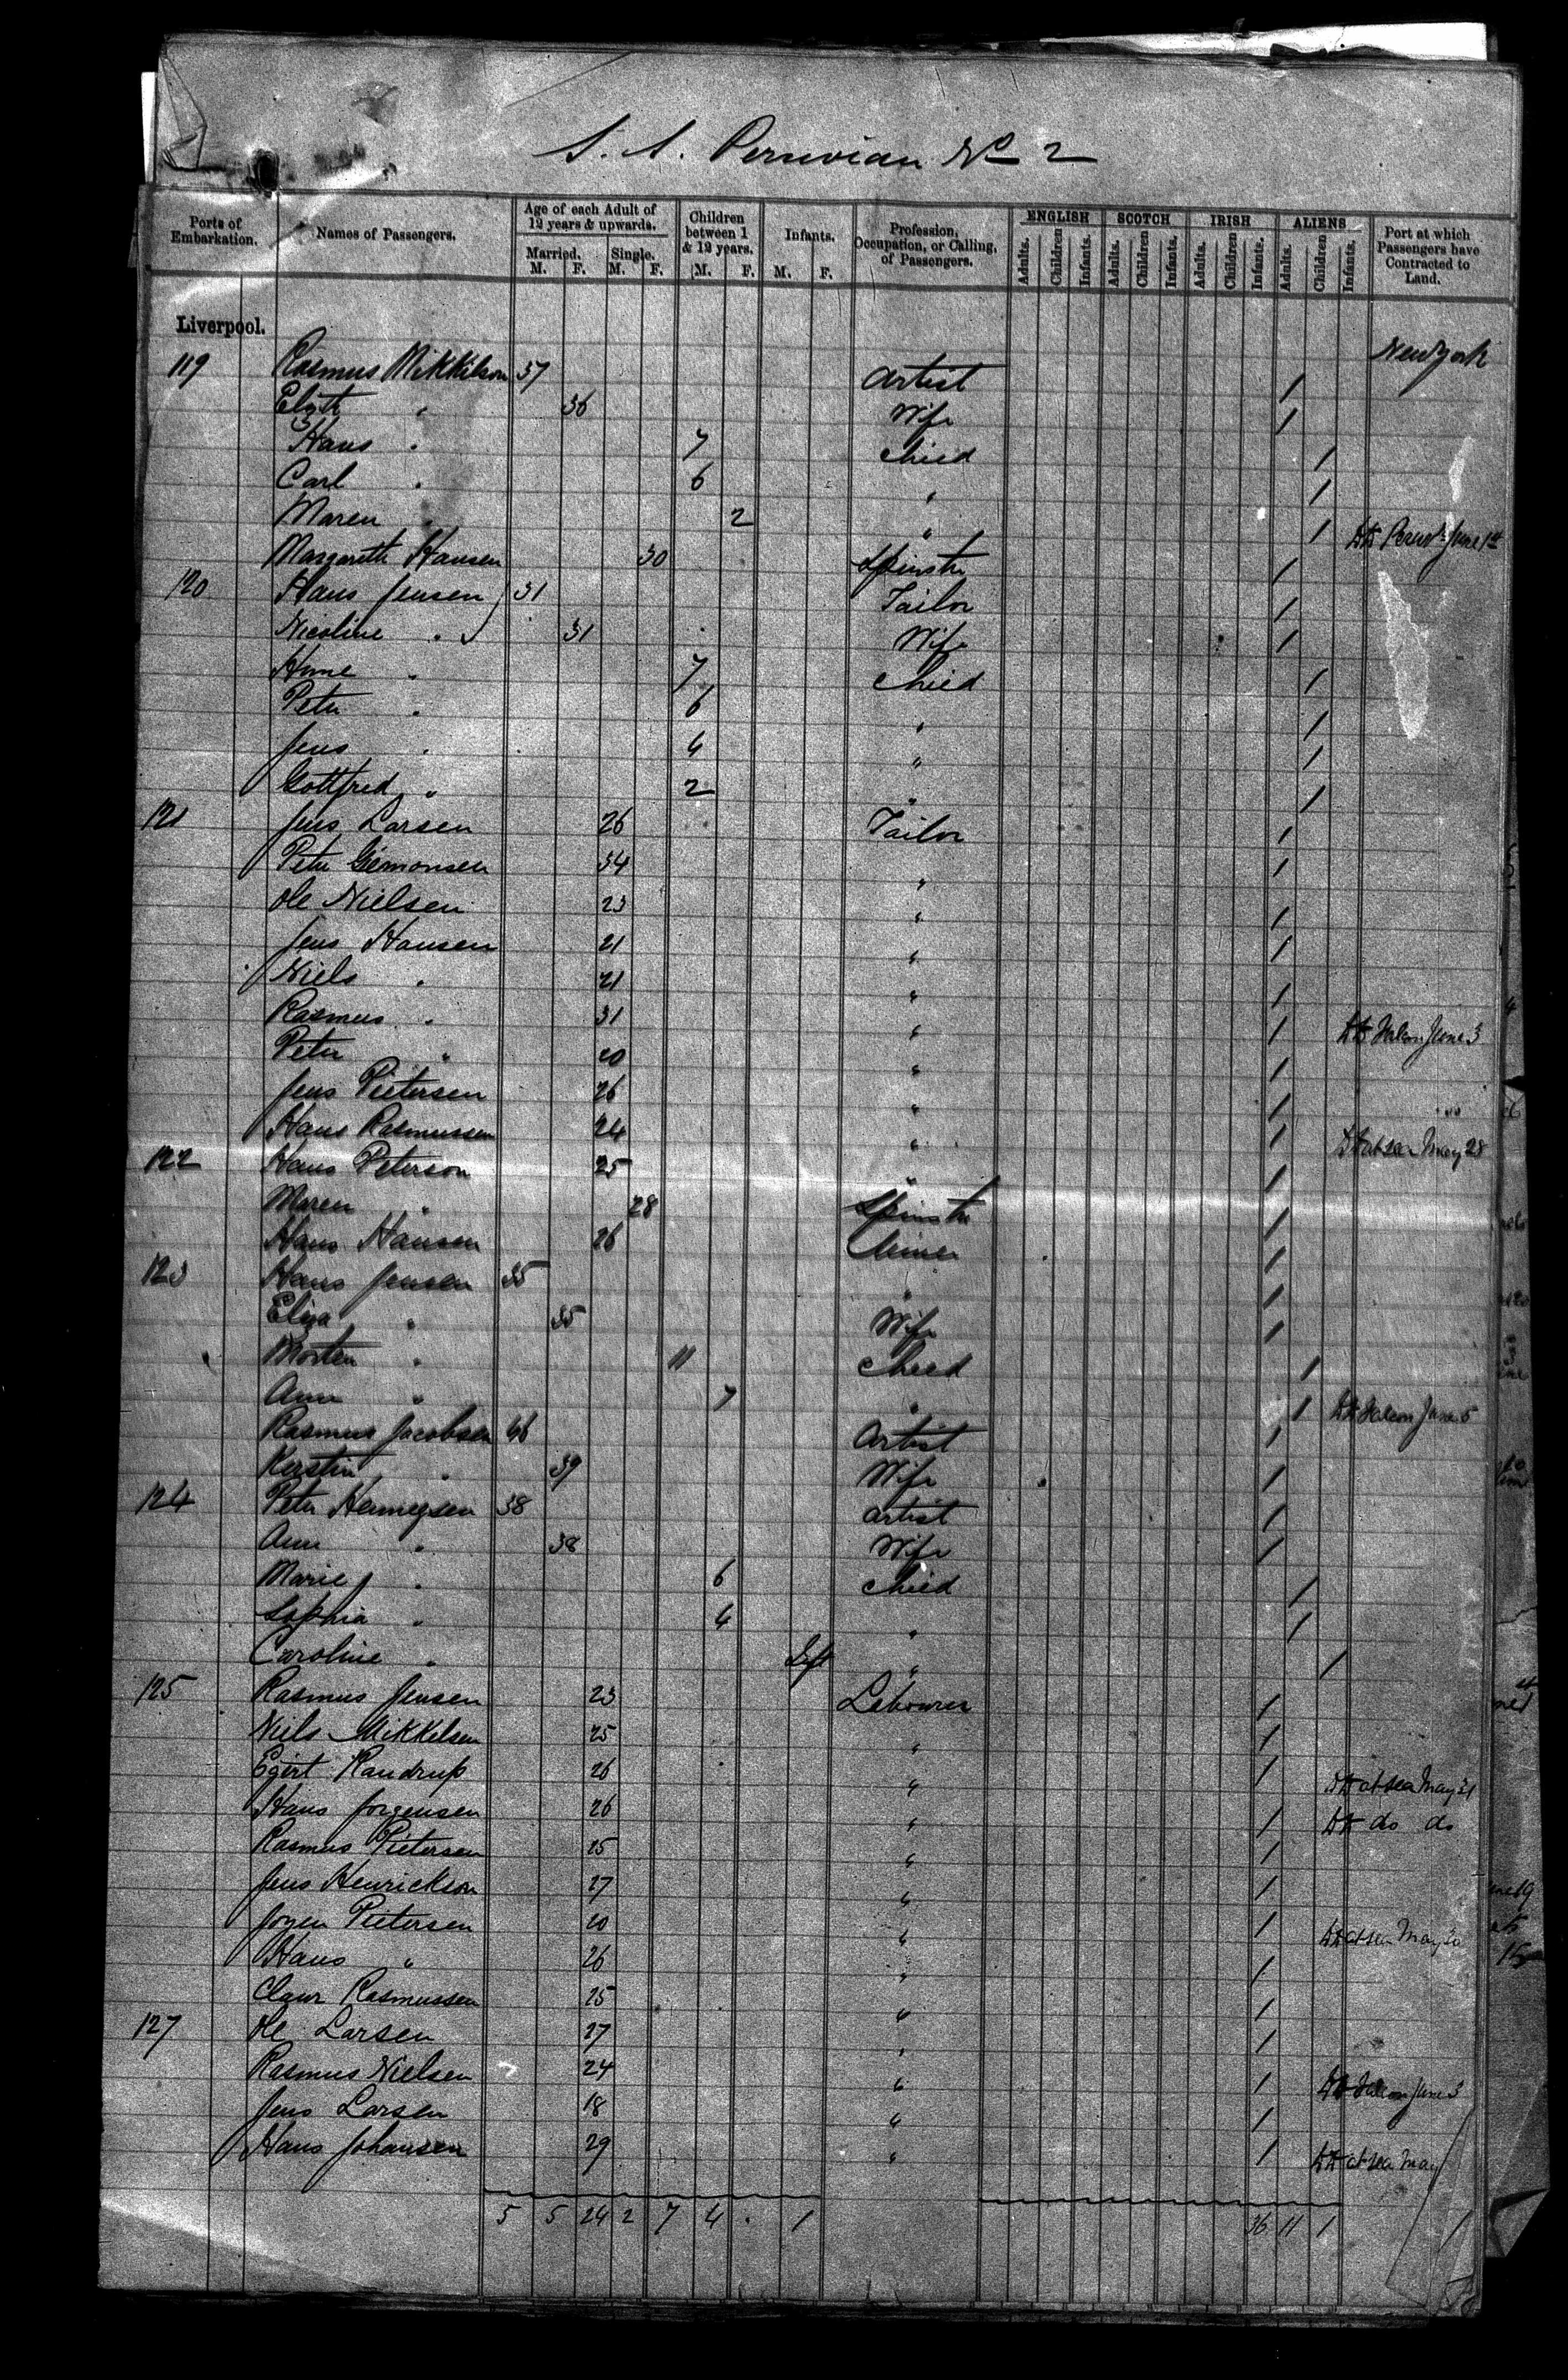 S. S. Peruvian No 2
Ports of Embarkation. Names of Passengers. Age of each Adult of 12 years & upwards. Children between 1 & 12 years. Infants. Profession, Occupation, or Calling, of Passengers. ENGLISH SCOTCH IRISH ALIENS Port at which Passengers have Contracted to Land.
Married. Single.
M. F. M. F. M. F. M. F. Adults. Children Infants. Adults. Children Infants. Adults. Children Infants. Adults. Children Infants.
Liverpool.
119 Rasmus Mikkilson 37 Artist 1 New York
Elizth " 36 Wife 1
Hans " 7 Child 1
Carl " 6 " 1
Maren " 2 " 1
Margareth Hansen 30 Spinstr 1 June 1st
120 Hans Jensen 31 Tailor 1
Nicoline " 31 Wife 1
" 7 Child 1
Peter " 6 " 1
Jens " 4 " 1
Gottfred " 2 " 1
121 Jens Larsen 26 Tailor 1
Peter 34 " 1
Ole Nielsen 23 " 1
Jens Hansen 21 " 1
Niels " 21 " 1
Rasmus " 31 " 1 June 3
Peter " 20 " 1
Jens Pietersen 26 " 1
Hans Rasmussen 24 " 1 at sea May 28
122 Hans Peterson 25 " 1
Maren " 28 Spinstr 1
Hans Hansen 26 Miner 1
123 Hans Jensen 35 " 1
Eliza " 35 Wife 1
Morten " 11 Child 1
Ann " 7 " 1 June 5
Rasmus Jacobsen 46 Artist 1
Kerstin " 39 Wife 1
124 Peter 38 Artist 1
Ann " 38 Wife 1
Marie " 6 Child 1
Sophia " 4 " 1
Caroline " Inft " 1
125 Rasmus Jensen 23 Labourer 1
Niels Mikkelsen 25 " 1
Egert Randrup 26 " 1 at sea May 31
Hans Jorgensen 26 " 1 do do
Rasmus Pietersen 25 " 1
Jens Henrickson 27 " 1
Pietersen 20 " 1 at sea May
Hans " 26 " 1
Rasmussen 25 " 1
127 Ole Larsen 27 " 1
Rasmus Nielsen 24 " 1 June 3
Jens Larsen 18 " 1
Hans Johansen 29 " 1 at sea May
5 5 24 2 7 4 . 1 36 11 1